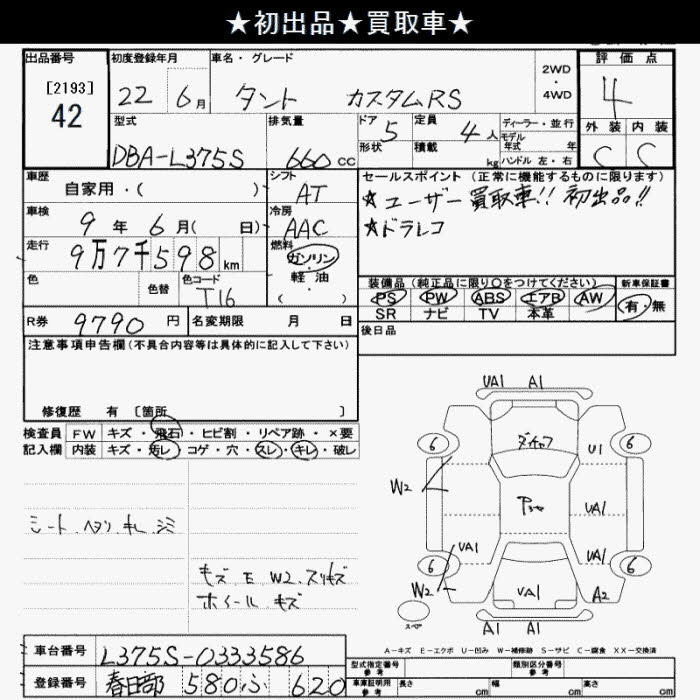 ★初出品★買取車★
出品番号
[2193]
42
初度登録年月
22 6月
車名・グレード
タント カスタムRS
2WD
・
4WD
評価点
4
型式
DBA-L375S
排気量
660cc
ドア 5
形状
定員 4人
積載 kg
ディーラー・並行
モデル
年式 年
ハンドル 左・右
外装 内装
C C
車歴
自家用・( )
シフト
AT
セールスポイント (正常に機能するものに限ります)
★ユーザー買取車!! 初出品!!
★ドラレコ
車検
9年6月( 日)
冷房
AAC
走行
9万7千598km
燃料
ガソリン
・
軽油
( )
色
色替
色コード
T16
装備品 (純正品に限り〇をつけてください)
PS PW ABS エアB AW
SR ナビ TV 本革
新車保証書
有・無
R券 9790円
名変期限 月 日
後日品
注意事項申告欄(不具合内容等は具体的に記入して下さい)
修復歴 有 [箇所 ]
検査員
記入欄
FW キズ・飛石・ヒビ割・リペア跡・×要
内装 キズ・汚レ・コゲ・穴・スレ・キレ・破レ
シート.ヘタリ.キレ.シミ
キズ.E W2.スリキズ
ホイール キズ
UA1 A1
6 6
U1
W2
UA1
UA1 UA1
6 6
W2 UA1 A2
スペア
A1 A1
A-キズ E-エクボ U-凹み W-補修跡 S-サビ C-腐食 XX-交換済
車台番号 L375S-0333586
登録番号 春日部 580 ふ 620
型式指定番号
参考
類別区分番号
参考
車庫証明用
参考
長さ cm
幅 cm
高さ cm